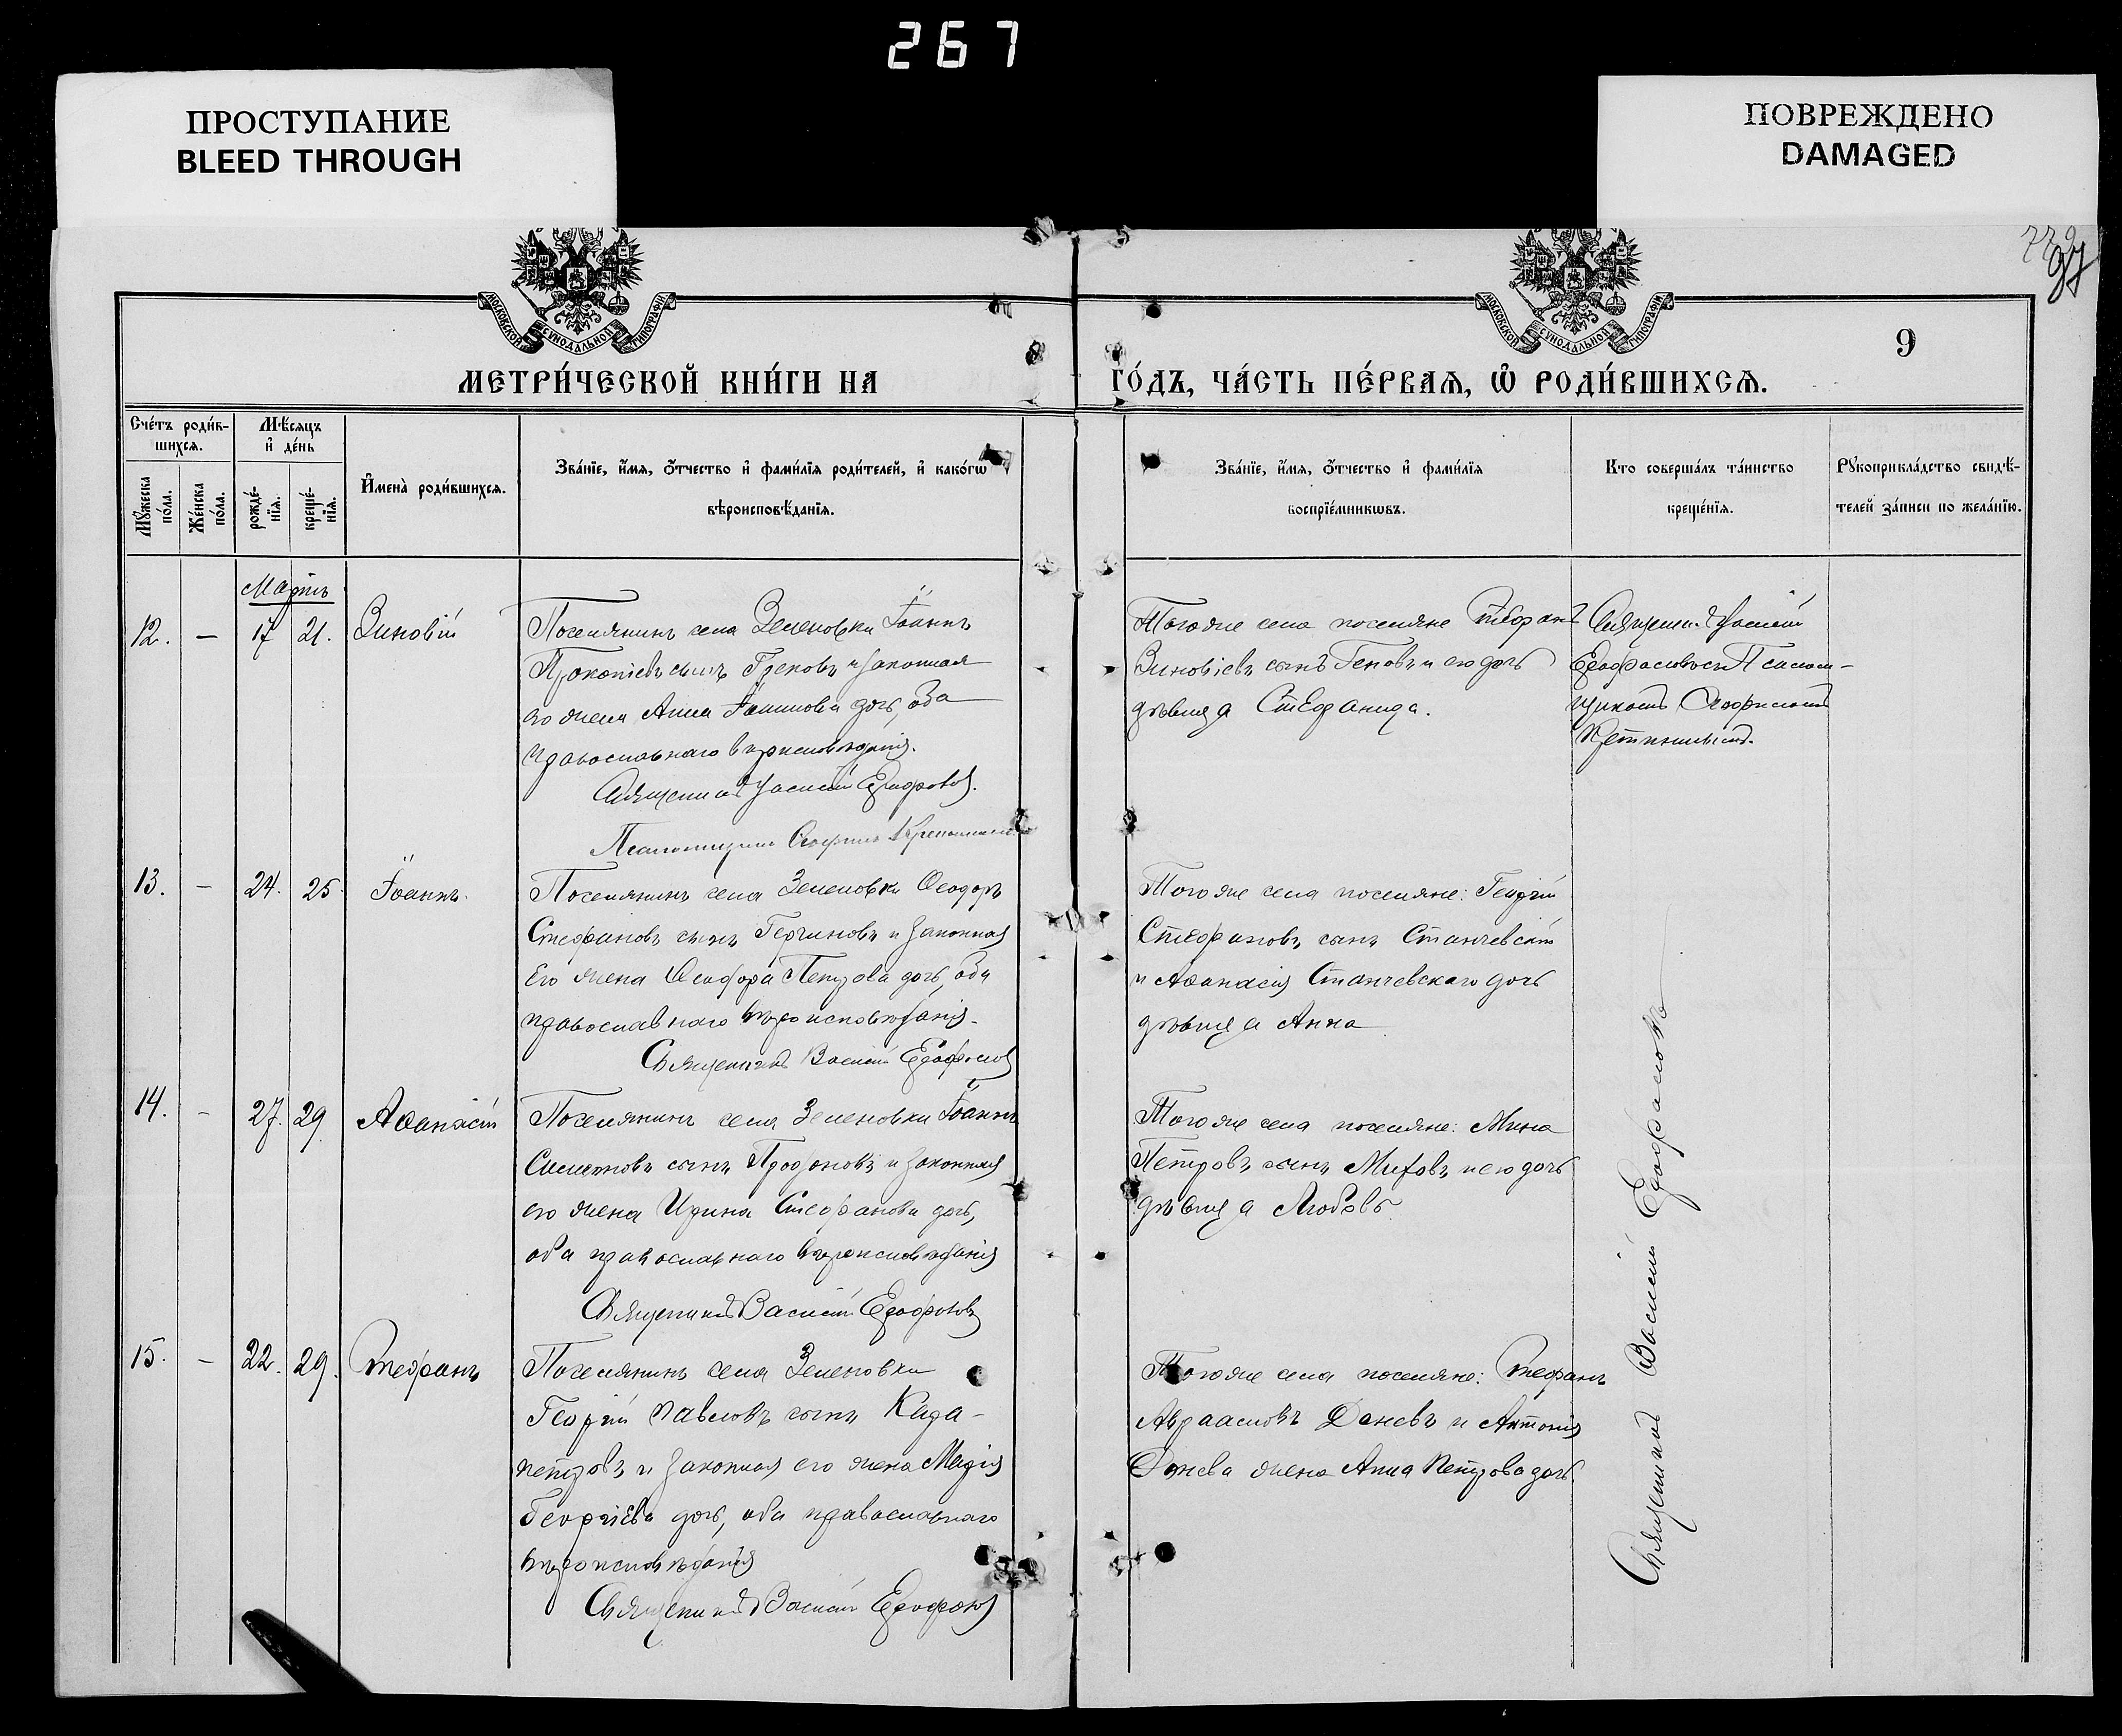 267
ПРОСТУПАНИЕ
BLEED THROUGH
ПОВРЕЖДЕНО
DAMAGED
МОСКОВСКОЙ СѴНОДАЛЬНОЙ ТИПОГРАФІИ
МОСКОВСКОЙ СѴНОДАЛЬНОЙ ТИПОГРАФІИ
97
9
МЕТРИ́ЧЕСКОЙ КНИ́ГИ НА
ГО́ДЪ, ЧА́СТЬ ПЕ́РВАѦ, Ѽ РОДИ́ВШИХСѦ.
Сче́тъ роди́в-
шихсѧ.
Мѣ́сѧцъ
и҆ де́нь
Мꙋ́жеска
по́ла.
Же́нска
по́ла.
рожде́-
нїѧ.
креще́-
нїѧ.
И҆мена̀ роди́вшихсѧ.
Зва́нїе, и҆́мѧ, ѻ҆́тчество и҆ фами́лїѧ роди́телей, и҆ како́гѡ
вѣроисповѣ́данїѧ.
Зва́нїе, и҆́мѧ, ѻ҆́тчество и҆ фами́лїѧ
воспрїе́мникѡвъ.
Кто соверша́лъ та́инство
креще́нїѧ.
Рꙋкоприкла́дство свидѣ́-
телей за́писи по жела́нїю.
Мартъ
12. — 17 21. Зиновій
Поселянинъ села Зеленовки Іоаннъ
Прокопіевъ сынъ и законная
его жена Анна дочь, оба
православнаго вѣроисповѣданія.
Священникъ Василій
Псаломщикъ
Того же села поселяне Стефанъ
Зиновіевъ сынъ Геновъ и его дочь
дѣвица Стефанида.
Священ. Василій
Псалом-
щикомъ
13. — 24. 25 Іоаннъ.
Поселянинъ села Зеленовки Ѳеодоръ
Стефановъ сынъ и законная
Его жена Ѳеодора Петрова дочь, оба
православнаго вѣроисповѣданія.
Священникъ Василій
Того же села поселяне: Георгій
Стефановъ сынъ Станчевскій
и Аѳанасія Станчевскаго дочь
дѣвица Анна
14. — 27. 29 Аѳанасій
Поселянинъ села Зеленовки Іоаннъ
Симеоновъ сынъ Продановъ и законная
его жена Ирина Стефанова дочь,
оба православнаго вѣроисповѣданія
Священникъ Василій
Того же села поселяне: Мина
Петровъ сынъ и его дочь
дѣвица Любовь
15. — 22. 29. Стефанъ
Поселянинъ села Зеленовки
Георгій Павловъ сынъ Кара-
петровъ и законная его жена Марія
Георгіева дочь, оба православнаго
вѣроисповѣданія
Священникъ Василій
Того же села поселяне: Стефанъ
Авраамовъ Доневъ и Антонія
Донева жена Анна Петрова дочь
Священникъ Василій